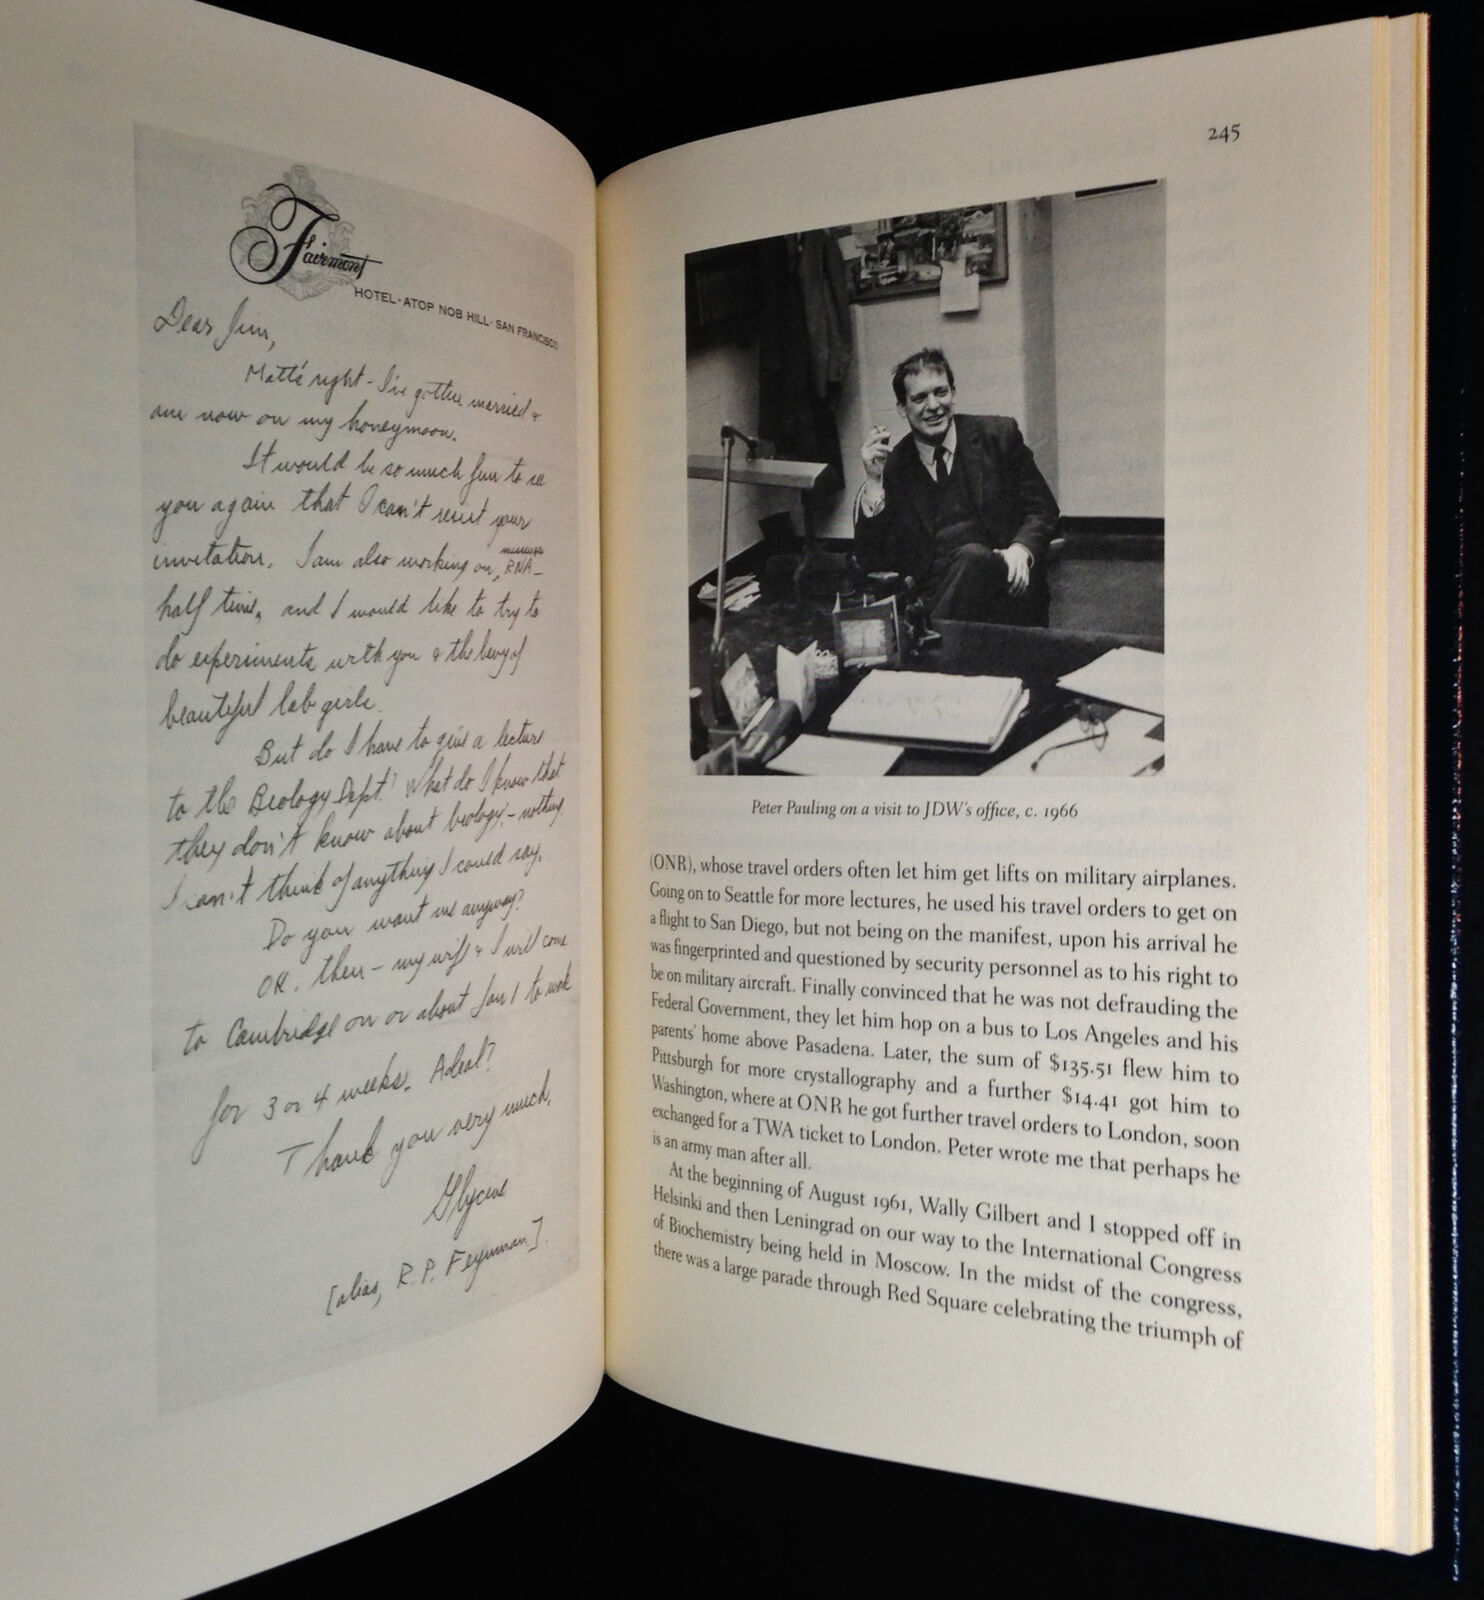 Fairmont
HOTEL · ATOP NOB HILL · SAN FRANCISCO
Dear Jim,
Matt's right - I've gotten married &
am now on my honeymoon.
It would be so much fun to see
you again that I can't resist your
messenger
invitation. I am also working on, RNA -
half time, and I would like to try to
do experiments with you & the bevy of
beautiful lab girls.
But do I have to give a lecture
to the Biology Dept? What do I know that
they don't know about biology - nothing.
I can't think of anything I could say.
Do you want me anyway?
OK. then - my wife & I will come
to Cambridge on or about Jan 1 to work
for 3 or 4 weeks. A deal?
Thank you very much,
Glycine
[alias, R. P. Feynman].
245
Peter Pauling on a visit to JDW's office, c. 1966
(ONR), whose travel orders often let him get lifts on military airplanes.
Going on to Seattle for more lectures, he used his travel orders to get on
a flight to San Diego, but not being on the manifest, upon his arrival he
was fingerprinted and questioned by security personnel as to his right to
be on military aircraft. Finally convinced that he was not defrauding the
Federal Government, they let him hop on a bus to Los Angeles and his
parents' home above Pasadena. Later, the sum of $135.51 flew him to
Pittsburgh for more crystallography and a further $14.41 got him to
Washington, where at ONR he got further travel orders to London, soon
exchanged for a TWA ticket to London. Peter wrote me that perhaps he
is an army man after all.
At the beginning of August 1961, Wally Gilbert and I stopped off in
Helsinki and then Leningrad on our way to the International Congress
of Biochemistry being held in Moscow. In the midst of the congress,
there was a large parade through Red Square celebrating the triumph of